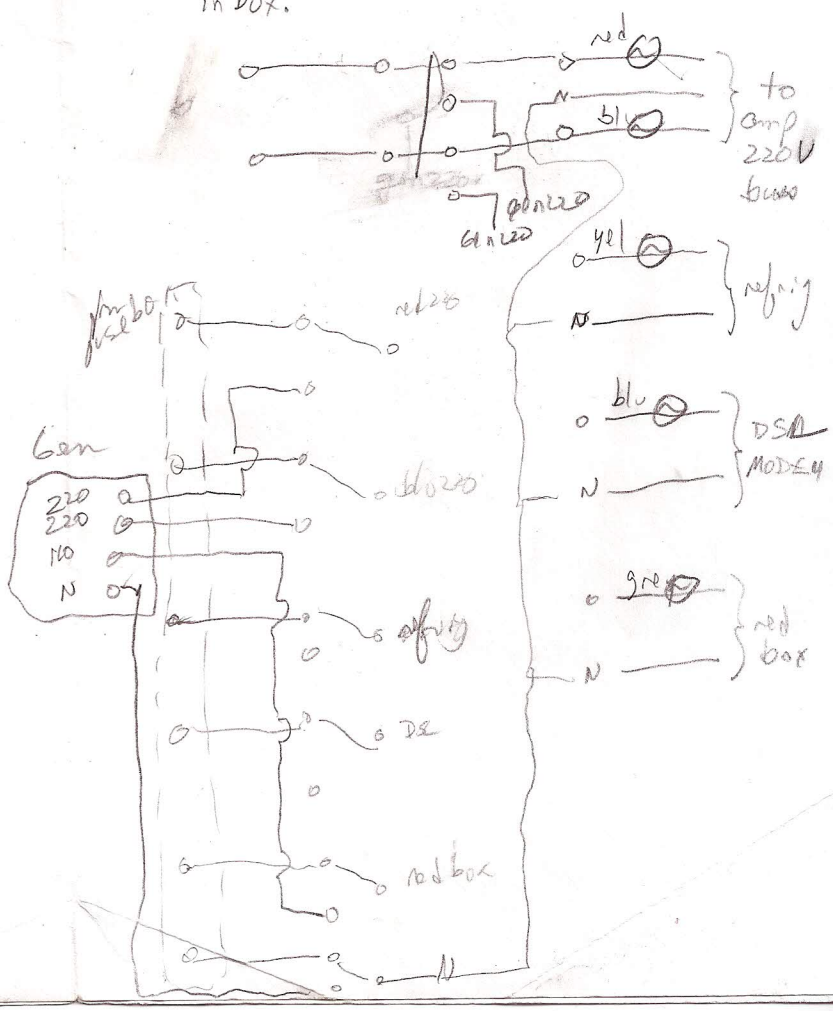 in box.
red
N
blu
to
amp
220V
buss
gen220
gen220
gen220
yel
N
refrig
from
fuse box
red 220
blu
N
DSL
MODEM
Gen
220
220
110
N
blu 220
gre
N
red
box
refrig
DSL
red box
N